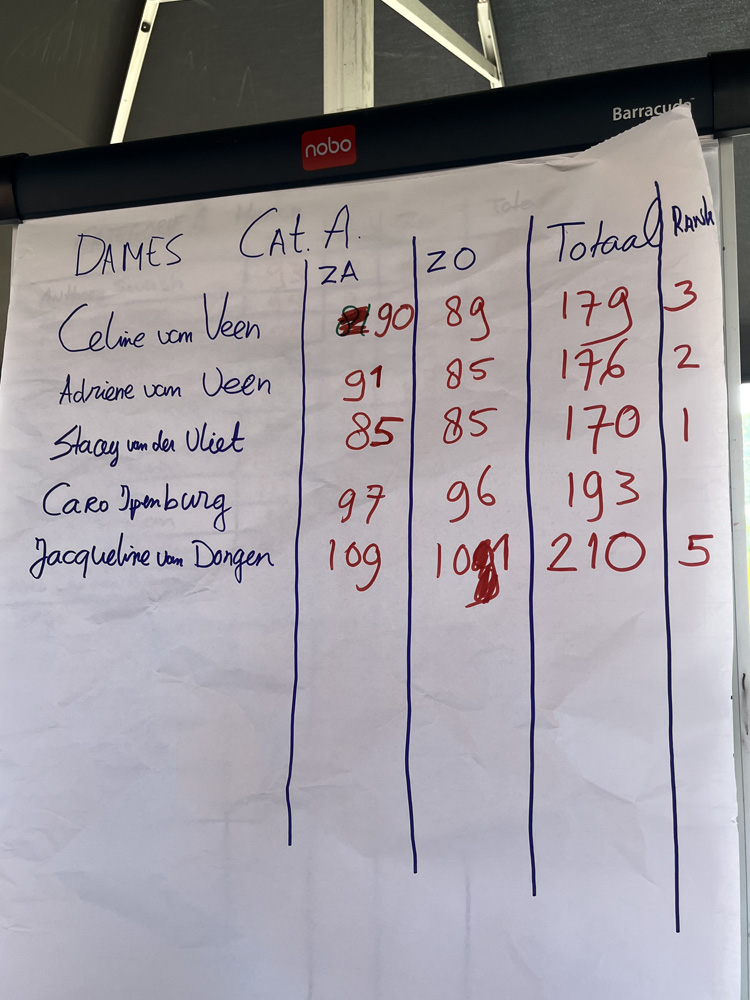 Barracuda
nobo
DAMES CAt. A. ZA ZO Totaal RANK
Celine van Veen 90 89 179 3
Adriene van Veen 91 85 176 2
Stacey van der Vliet 85 85 170 1
CARO Ipenburg 97 96 193
Jacqueline van Dongen 109 101 210 5